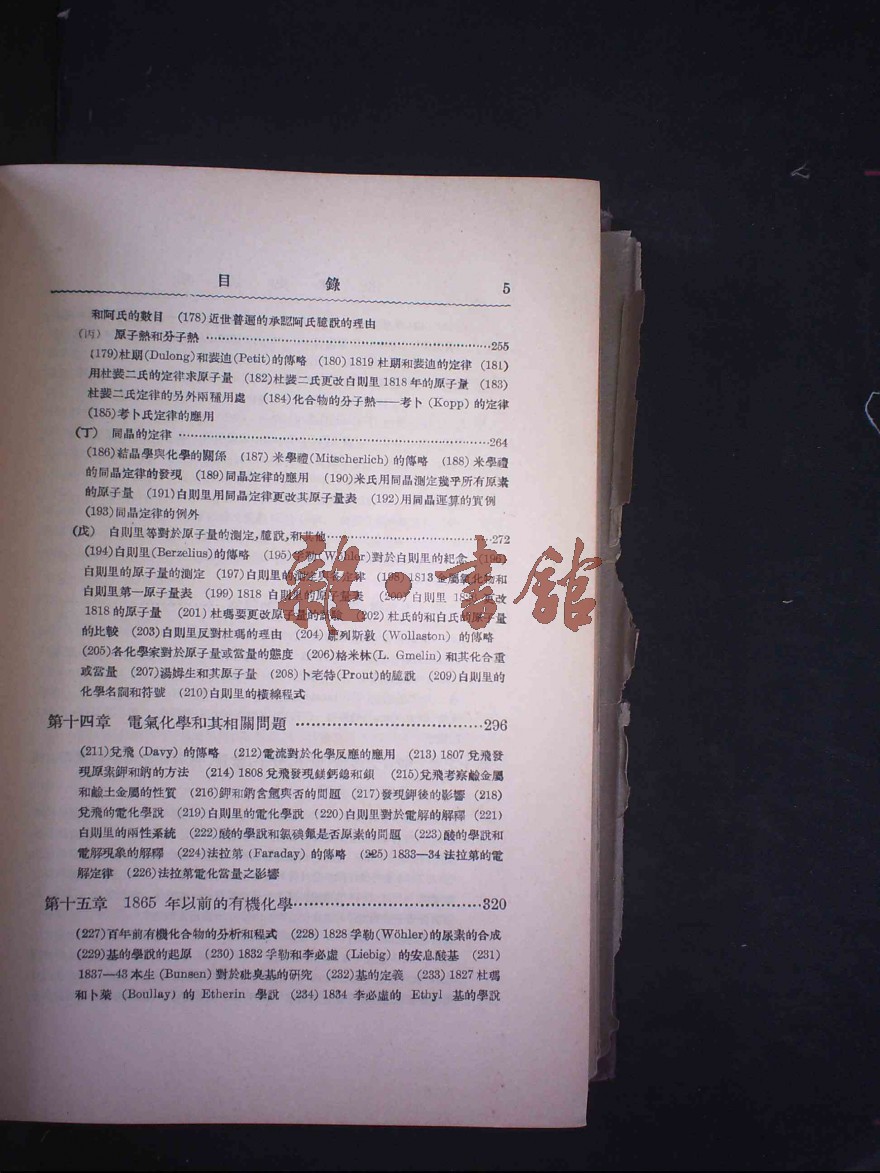 目 錄 5
和阿氏的數目 (178)近世普遍的承認阿氏臆說的理由
(丙) 原子熱和分子熱 ……255
(179)杜朗(Dulong)和裴迪(Petit)的傳略 (180) 1819 杜朗和裴迪的定律 (181)
用杜裴二氏的定律求原子量 (182)杜裴二氏更改白則里 1818 年的原子量 (183)
杜裴二氏定律的另外兩種用處 (184)化合物的分子熱——考卜 (Kopp) 的定律
(185)考卜氏定律的應用
(丁) 同晶的定律 ……264
(186)結晶學與化學的關係 (187) 米學禮(Mitscherlich) 的傳略 (188) 米學禮
的同晶定律的發現 (189)同晶定律的應用 (190)米氏用同晶測定幾乎所有原素
的原子量 (191)白則里用同晶定律更改其原子量表 (192)用同晶運算的實例
(193)同晶定律的例外
(戊) 白則里等對於原子量的測定,臆說,和其他……272
(194)白則里(Berzelius)的傳略 (195)孚勒(Wöhler)對於白則里的紀念 (196)
白則里的原子量的測定 (197)白則里的測定與各定律 (198) 1813 金屬氧化物和
白則里第一原子量表 (199) 1818 白則里的原子量表 (200)白則里 更改
1818 的原子量 (201) 杜瑪要更改原子量的試驗 (202) 杜氏的和白氏的原子量
的比較 (203)白則里反對杜瑪的理由 (204) 列斯敦 (Wollaston) 的傳略
(205)各化學家對於原子量或當量的態度 (206)格米林(L. Gmelin) 和其化合重
或當量 (207)湯姆生和其原子量 (208)卜老特(Prout)的臆說 (209)白則里的
化學名詞和符號 (210)白則里的橫線程式
第十四章 電氣化學和其相關問題 ……296
(211)兌飛 (Davy) 的傳略 (212)電流對於化學反應的應用 (213) 1807 兌飛發
現原素鉀和鈉的方法 (214) 1808 兌飛發現鎂鈣鎴和鋇 (215)兌飛考察鹼金屬
和鹼土金屬的性質 (216)鉀和鈉含氫與否的問題 (217)發現鉀後的影響 (218)
兌飛的電化學說 (219)白則里的電化學說 (220)白則里對於電解的解釋 (221)
白則里的兩性系統 (222)酸的學說和氯碘氟是否原素的問題 (223)酸的學說和
電解現象的解釋 (224)法拉第 (Faraday) 的傳略 (225) 1833—34 法拉第的電
解定律 (226)法拉第電化當量之影響
第十五章 1865 年以前的有機化學……320
(227)百年前有機化合物的分析和程式 (228) 1828 孚勒(Wöhler)的尿素的合成
(229)基的學說的起原 (230) 1832 孚勒和李必虛 (Liebig) 的安息酸基 (231)
1837—43 本生 (Bunsen) 對於砒臭基的研究 (232)基的定義 (233) 1827 杜瑪
和卜萊 (Boullay) 的 Etherin 學說 (234) 1834 李必虛的 Ethyl 基的學說
雜·書館